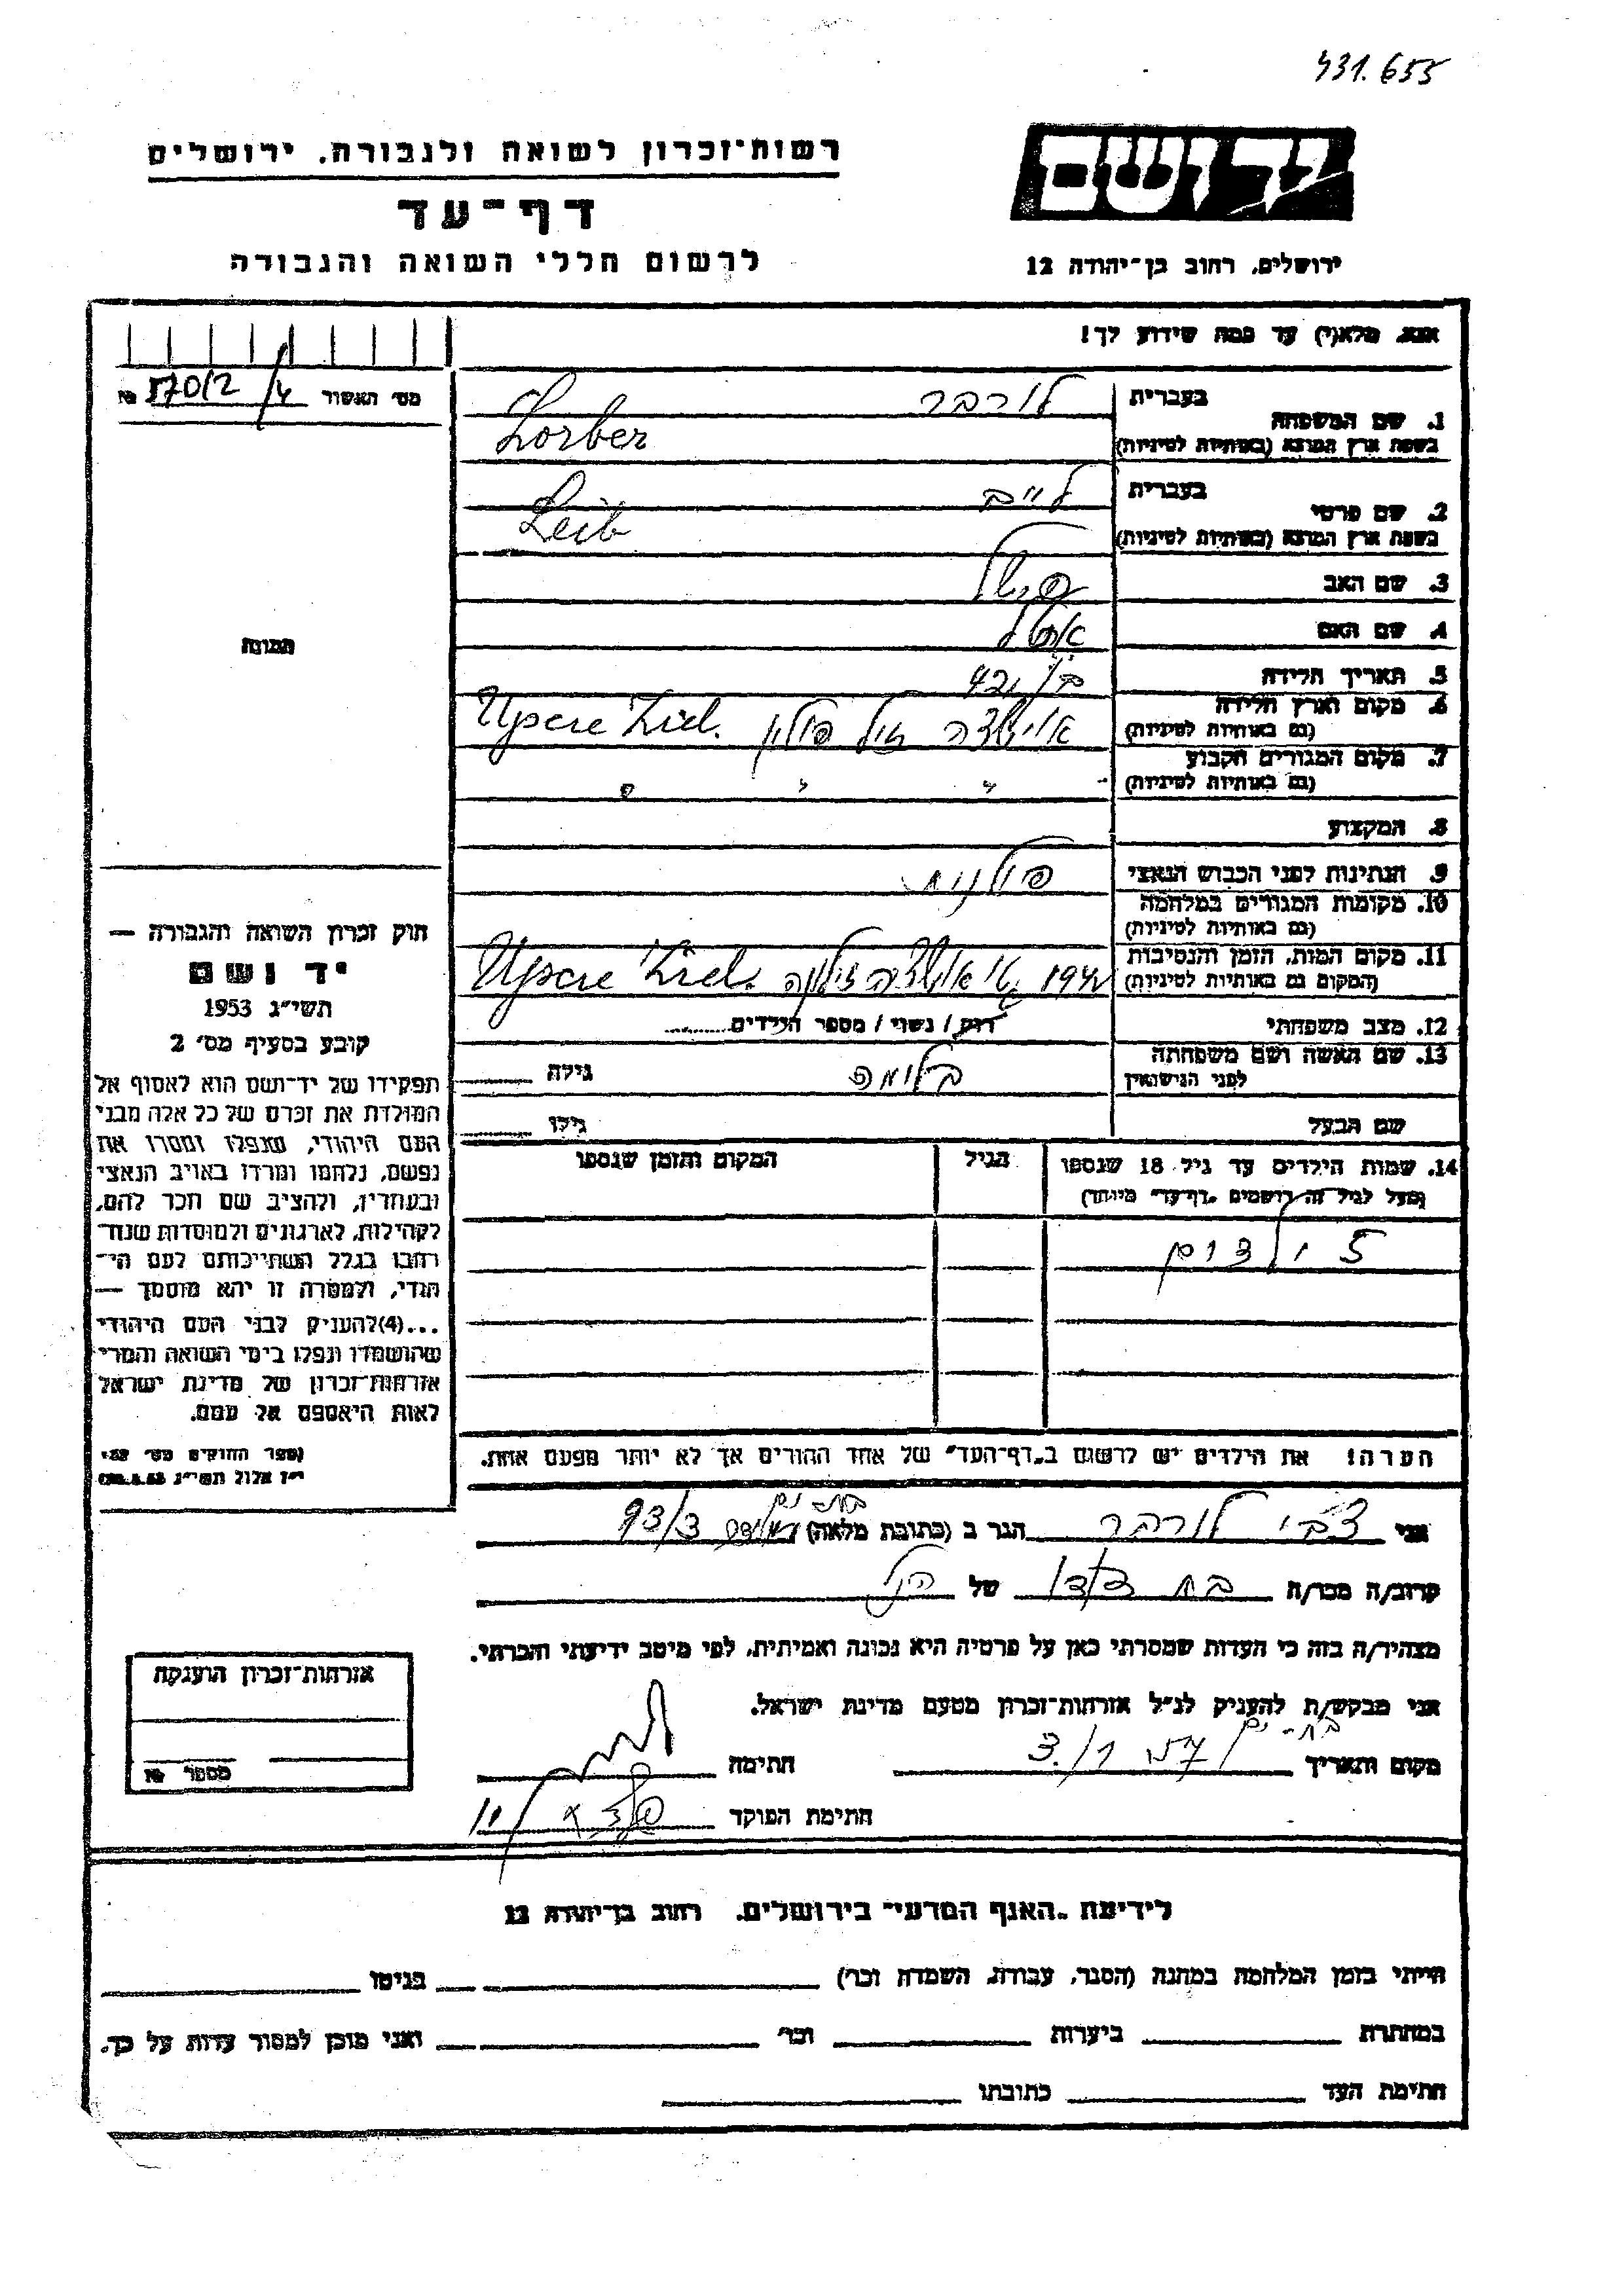 431.655
יד ושם
ירושלים, רחוב בן־יהודה 12
רשות־זכרון לשואה ולגבורה, ירושלים
דף־עד
לרשום חללי השואה והגבורה
אנא, מלא(י) עד כמה שידוע לך!
מס׳ האשור № 570/2
תמונה
1. שם המשפחה
בעברית לורבר
בשפת ארץ המוצא (באותיות לטיניות) Lorber
2. שם פרטי
בעברית לייב
בשפת ארץ המוצא (באותיות לטיניות) Leib
3. שם האב
4. שם האם
5. תאריך הלידה
6. מקום וארץ הלידה
(גם באותיות לטיניות) פולין
7. מקום המגורים הקבוע
(גם באותיות לטיניות) " " "
8. המקצוע
9. הנתינות לפני הכבוש הנאצי פולנית
10. מקומות המגורים במלחמה
(גם באותיות לטיניות)
11. מקום המות, הזמן והנסיבות
(המקום גם באותיות לטיניות)
12. מצב משפחתי רווק / נשוי / מספר הילדים
13. שם האשה ושם משפחתה
לפני הנישואין בלומה גילה
שם הבעל גילו
14. שמות הילדים עד גיל 18 שנספו הגיל המקום והזמן שנספו
(מעל לגיל זה רושמים „דף־עד" מיוחד)
5 ילדים
הערה! את הילדים יש לרשום ב„דף־העד" של אחד ההורים אך לא יותר מפעם אחת.
חוק זכרון השואה והגבורה —
יד ושם
תשי״ג 1953
קובע בסעיף מס׳ 2
תפקידו של יד־ושם הוא לאסוף אל
המולדת את זכרם של כל אלה מבני
העם היהודי, שנפלו ומסרו את
נפשם, נלחמו ומרדו באויב הנאצי
ובעוזריו, ולהציב שם וזכר להם,
לקהילות, לארגונים ולמוסדות שנח־
רבו בגלל השתייכותם לעם הי־
הודי, ולמטרה זו יהא מוסמך —
...(4)להעניק לבני העם היהודי
שהושמדו ונפלו בימי השואה והמרי
אזרחות־זכרון של מדינת ישראל
לאות היאספם אל עמם.
אני צבי לורבר הגר ב (כתובת מלאה) בת ים
קרוב/ה מכר/ה בת דוד של הנ״ל
מצהיר/ה בזה כי העדות שמסרתי כאן על פרטיה היא נכונה ואמיתית, לפי מיטב ידיעתי והכרתי.
אני מבקש/ת להעניק לנ״ל אזרחות־זכרון מטעם מדינת ישראל.
מקום ותאריך בת־ים חתימה
חתימת הפוקד
אזרחות־זכרון הוענקה
מספר №
לידיעת „האגף המדעי" בירושלים, רחוב בן־יהודה 12
הייתי בזמן המלחמה במחנה (הסגר, עבודה, השמדה וכו׳) בגיטו
במחתרת ביערות וכו׳ ואני מוכן למסור עדות על כך.
חתימת העד כתובתו